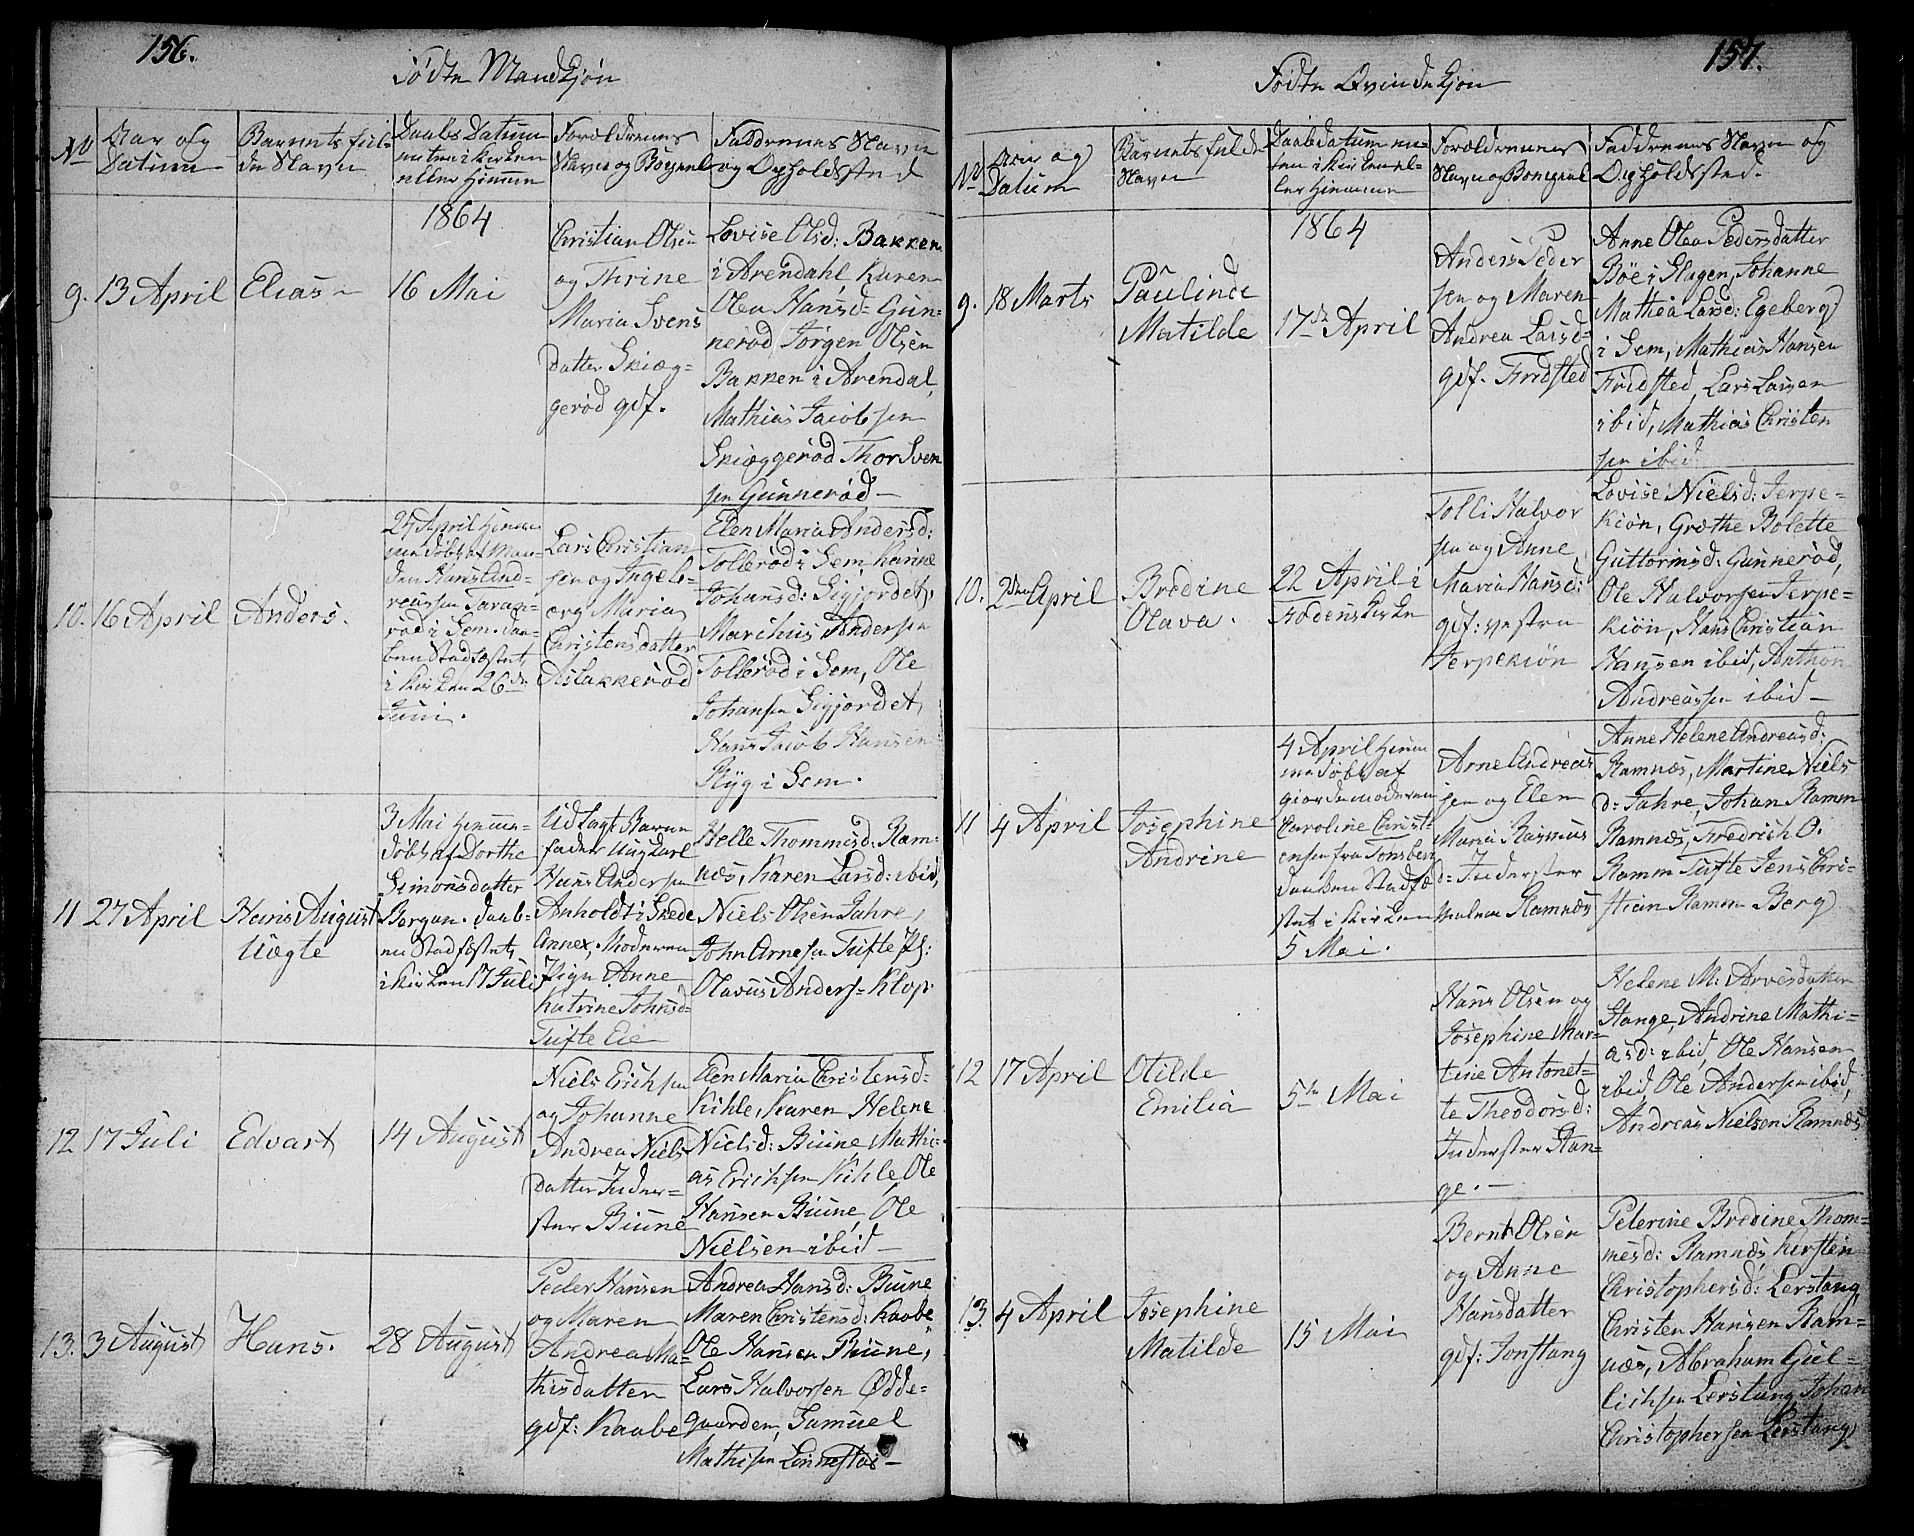 156.
Fødte Mandkjøn
No
Aar og
Datum
Barnets ful-
de Navn
Daabs Datum
enten i Kirken
eller Hjemme
Forældrenes
Navn og Bopæl
Faddrenes Navn
og Opholdssted
1864
9.
13 April
Elias
16 Mai
Christian Olsen
og Thrine
Maria Svens
datter Skiæg-
gerød gdf.
Lovise Olsd: Bakken
i Arendahl, Karen
Olea Hansd= Gun-
nerød Jørgen Olsen
Bakken i Arendal,
Mathias Jacobsen
Skiæggerød Thor Sven
sen Gunnerød
10.
16 April
Anders.
24 April Hjem
me døbt af Man-
den Hans And-
reassen Taran-
rød i Sem. Daa-
ben Stadfæstet
i Kirken 26de
Juni.
Lars Christian
sen og Ingeb-
org Maria
Christensdatter
Aslakkerød
Elen Maria Andersd:
Tollerød i Sem, Karine
Johansd: Sigjordet,
Marthus Andersen
Tollerød i Sem, Ole
Johansen Sigjordet,
Hans Jacob Hansen
Ryg i Sem.
11
27 April
Hans August
Uægte
3 Mai Hjemme-
døbt af Dorthe
Simonsdatter
Bergan. Daab-
en Stadfæstet
i Kirken 17 Juli
Udlagt Barne
fader Ungkarl
Hans Andersen
Anholdt i Skede
Annex, Moderen
Pige Anne
Katrine Johnsd=
Tufte Eie
Helle Thommesd: Ram-
næs, Karen Larsd: ibid,
Niels Olsen Jahre,
John Arnesen Tufte Pl:
Olavus Anders= Klop
12
17 Juli
Edvart
14 August
Niels Erichsen
og Johanne
Andrea Niels
datter Inder-
ster Biune
Elen Maria Christensd=
Kihle, Karen Helene
Nielsd: Biune Mathi-
as Erichsen Kihle Ole
Hansen Biune, Ole
Nielsen ibid
13.
3 August
Hans.
28 August
Peder Hansen
og Maren
Andrea Ma-
thisdatter
gdf: Kaabe
Andrea Hansd: Biune
Maren Christensd: Kaabe
Ole Hansen Biune,
Lars Halvorsen Ødde-
gaarden, Samuel
Mathisen Linnestad
157.
Fødte Qvindekjøn
No
Aar og
Datum
Barnets fulde
Navn
Daabsdatum en-
ten i Kirken el-
ler Hjemme
Forældrenes
Navn og Bopæl
Faddrenes Navn og
Opholdssted.
1864
9.
18 Marts
Paulinde
Matilde
17de April
Anders Peder
sen og Maren
Andrea Larsd=
gdf. Fridsted
Anne Olea Pedersdatter
Bøe i Slagen, Johanne
Mathea Larsd: Egeberg
i Sem, Mathias Hansen
Fridsted, Lars Larsen
ibid, Mathias Christen
sen ibid
10.
2den April
Bredine
Olava.
22 April i
Fodens Kirke
Tolli Halvor
sen og Anne
Maria Hansd:
gdf: vestra
Jerpekiøn
Lovise Nielsd: Jerpe-
kiøn, Grethe Bolette
Guttormsd: Gunnerød,
Ole Halvorsen Jerpe-
kiøn, Hans Christian
Hansen ibid, Anthon
Andreassen ibid
11
4 April
Josephine
Andrine
4 April Hjem
me døbt af
giordemoderen
Caroline Christ-
ensen fra Tønsberg
daaben Stadfæ-
stet i Kirken
5 Mai.
Arne Andreas
sen og Elen
Maria Rasmus
d= Inderster
Ramnæs
Anne Helene Andreasd:
Ramnæs, Martine Niels
d: Jahre, Johan Ramm
Ramnæs, Fredrich O.
Ramm Tufte Jens Chri-
stian Ramm Berg
12
17 April
Otilde
Emilia
5te Mai
Hans Olsen og
Josephine Mar-
tine Antonet-
te Theodorsd:
Inderster Stan-
ge.
Helene M: Arvesdatter
Stange, Andrine Mathi-
asd: ibid, Ole Hansen
ibid, Ole Andersen ibid,
Andreas Nielsen Ramnæs
13.
4 April
Josephine
Matilde
15 Mai
Bernt Olsen
og Anne
Hansdatter
gdf: Jonstang
Pelerine Bredine Thom-
mesd: Ramnæs, Kirsten
Christophersd: Lerstang
Christen Hansen Ram-
næs, Abraham Gul-
lichsen Lerstang Johan
Christophersen Lerstang